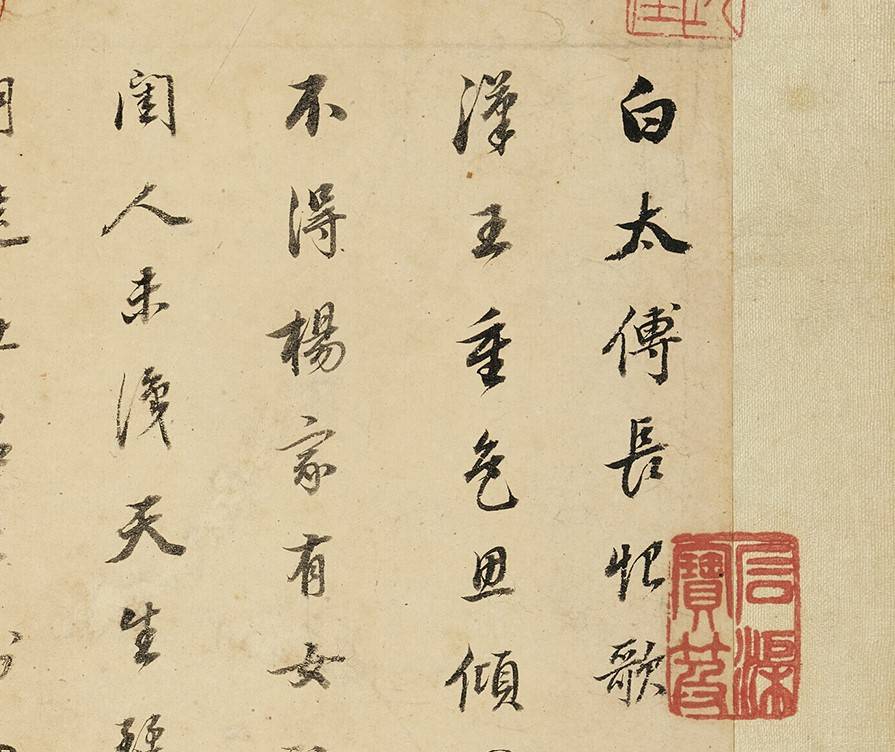 白太傅長恨歌
漢王重色思傾
不得楊家有女
閨人未識天生麗
石渠
寶笈